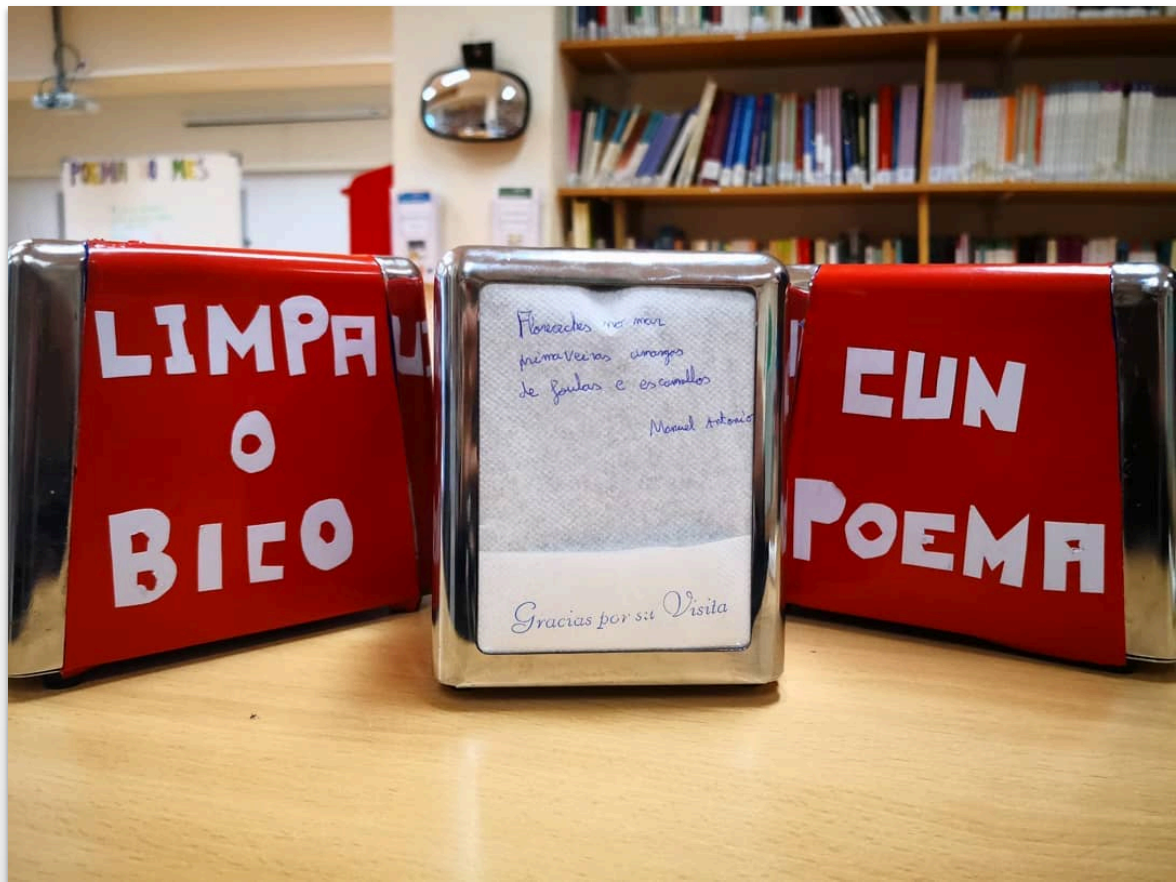 POEMA DO MES
LIMPA
O
BICO
Floreaches no mar
primaveiras amargas
de foulas e escumallos
Manuel Antonio
Gracias por su Visita
CUN
POEMA